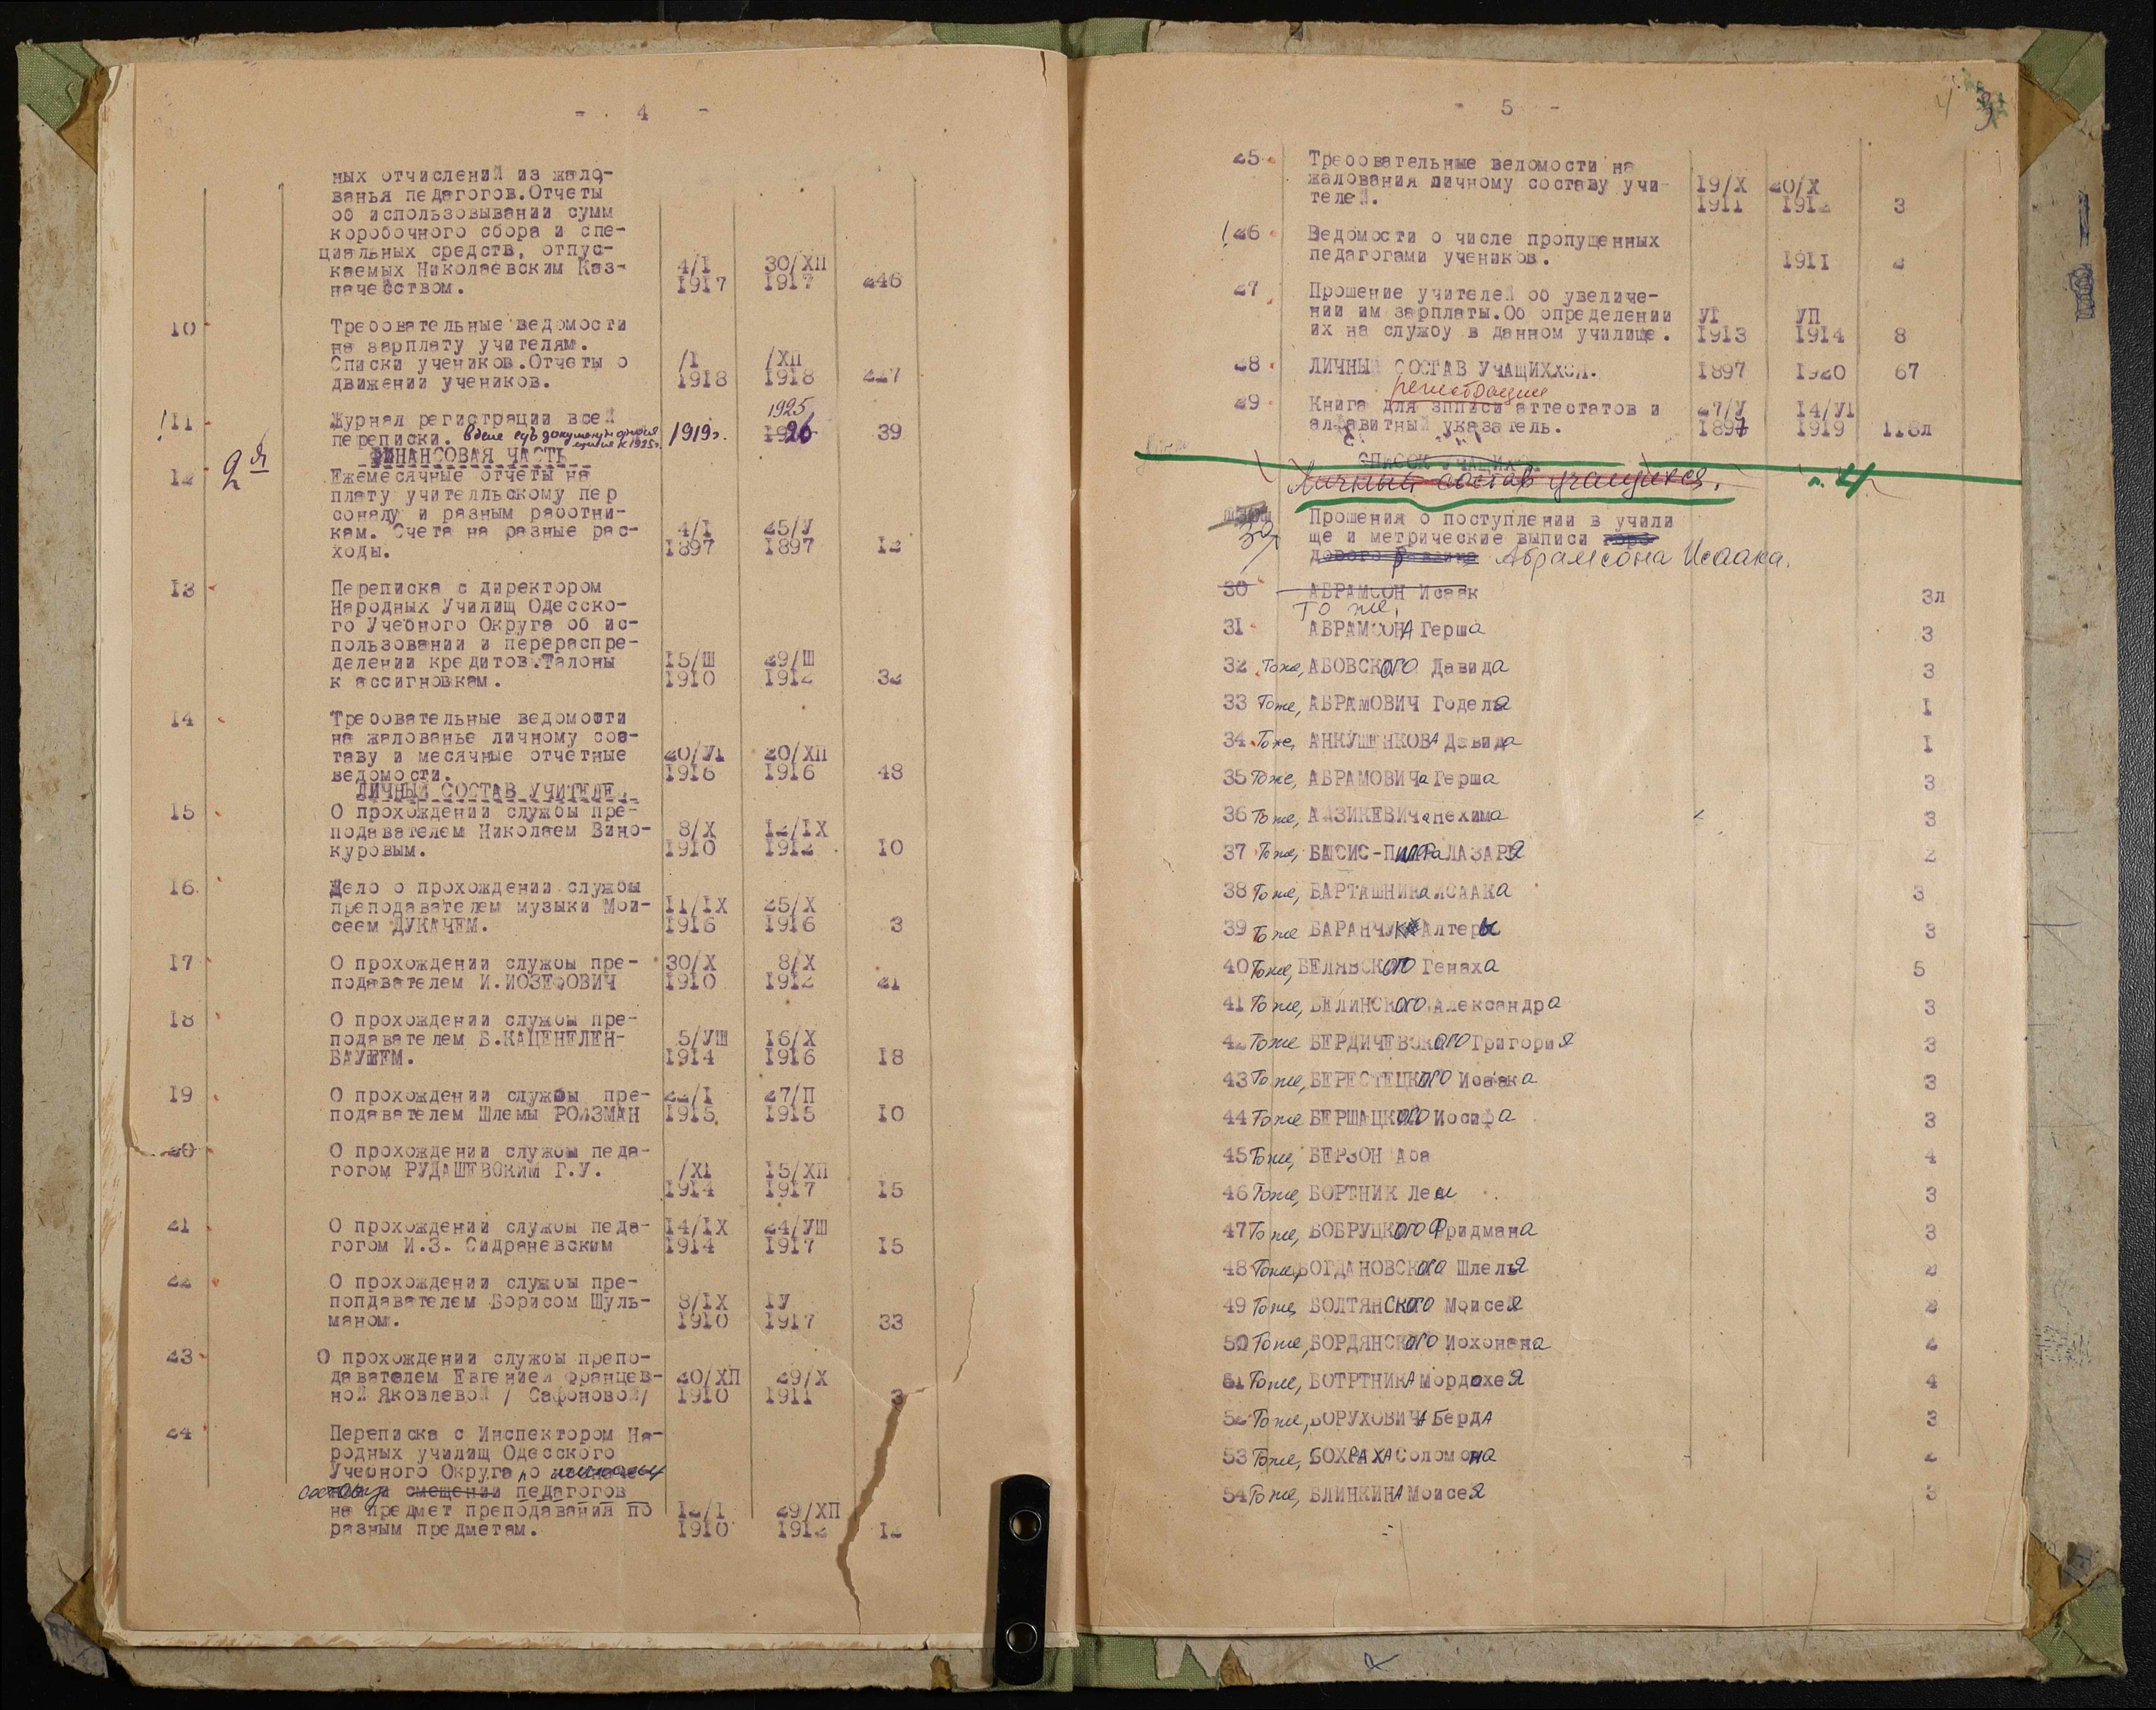 - 4 -
ных отчислений из жало-
ванья педагогов.Отчеты
об использовывании сумм
коробочного сбора и спе-
циальных средств, отпус-
каемых Николаевским Каз- 4/I 30/ХП
начейством. 1917 1917 246
10 Требовательные ведомости
на зарплату учителям.
Списки учеников.Отчеты о /I /ХП
движении учеников. 1918 1918 247
1925
!11 Журнал регистрации всей
переписки. 1919г. 1926 39
ФИНАНСОВАЯ ЧАСТЬ
2я
12 Ежемесячные отчеты на
плату учителльскому пер
соналу и разным работни-
кам. Счета на разные рас- 4/I 25/У
ходы. 1897 1897 12
13 Переписка с директором
Народных Училищ Одесско-
го Учебного Округа об ис-
пользовании и перераспре-
делении кредитов.Талоны 15/Ш 29/Ш
к ассигновкам. 1910 1912 32
14 Требовательные ведомости
на жалованье личному сос-
таву и месячные отчетные 20/У1 20/ХП
ведомости. 1916 1916 48
ЛИЧНЫЙ СОСТАВ УЧИТЕЛЕЙ
15 О прохождении службы пре-
подавателем Николаем Вино- 8/Х 12/IX
куровым. 1910 1912 10
16. Дело о прохождении службы
преподавателем музыки Мои- 11/IX 25/X
сеем ДУКАЧЕМ. 1916 1916 3
17 О прохождении службы пре- 30/X 8/X
подавателем И.ИОЗЕФОВИЧ 1910 1912 21
18 О прохождении службы пре-
подавателем Б.КАЦЕНЕЛЕН- 5/УШ 16/X
БАУШЕМ. 1914 1916 18
19 О прохождении службы пре- 22/I 27/П
подавателем Шлемы РОЙЗМАН 1915 1915 10
20 О прохождении службы педа-
гогом РУДАШЕВСКИМ Г.У. /X1 15/ХП
1914 1917 15
21 О прохождении службы педа- 14/IX 24/УШ
гогом И.З. Сидраневским 1914 1917 15
22 О прохождении службы пре-
попдавателем Борисом Шуль- 8/IX 1У
маном. 1910 1917 33
23 О прохождении службы препо-
давателем Евгенией Францев- 20/ХП 29/X
ной Яковлевой / Сафоновой/ 1910 1911 3
24 Переписка с Инспектором На-
родных училищ Одесского
Учебного Округа, о личному
составу смещении педагогов
на предмет преподавания по 12/I 29/ХП
разным предметам. 1910 1912 12
- 5 -
4 3
25 Требовательные ведомости на
жалования личному составу учи- 19/X 20/X
телей. 1911 1912 3
!26 Ведомости о числе пропущенных
педагогами учеников. 1911 2
27 Прошение учителей об увеличе-
нии им зарплаты.Об определении У1 УП
их на службу в данном училище. 1913 1914 8
28 ЛИЧНЫЙ СОСТАВ УЧАЩИХХСЯ. 1897 1920 67
регистрации
29 Книга для зпписи аттестатов и 27/У 14/У1
алфавитный указатель. 1897 1919 118л
СПИСОК УЧАЩИХСЯ
Личный состав учащихся.
30 Прошения о поступлении в учили
ще и метрические выписи
Абрамсона Исаака.
30 АБРАМСОН Исаак 3л
То же,
31 АБРАМСОНА Герша 3
32 То же, АБОВСКОГО Давида 3
33 То же, АБРАМОВИЧ Годеля 1
34 То же, АНКУШЕНКОВА Давида 1
35 То же, АБРАМОВИЧа Герша 3
36 То же, АЙЗИКЕВИЧа Нехима 3
37 То же, БАСИС-ПИЛЕРа ЛАЗАРЯ 2
38 То же, БАРТАШНИКа ИСААКа 3
39 То же БАРАНЧУК Алтеры 3
40 То же, БЕЛЯВСКОГО Генаха 5
41 То же, БЕЛИНСКОГО Александра 3
42 То же БЕРДИЧЕВСКОГО Григория 3
43 То же, БЕРЕСТЕЦКОГО Исаака 3
44 То же БЕРШАЦКОГО Иосифа 3
45 То же, БЕРЗОН Аба 4
46 То же, БОРТНИК Леи 3
47 То же, БОБРУЦКОГО Фридмана 3
48 То же, БОГДАНОВСКОГО Шлемы 2
49 То же, БОЛТЯНСКОГО Моисея 2
50 То же, БОРДЯНСКОГО Иохонана 2
51 То же, БОТРТНИКА Мордохея 4
52 То же, БОРУХОВИЧА БердА 3
53 То же, БОХРАХА Соломона 2
54 То же, БЛИНКИНА Моисея 3